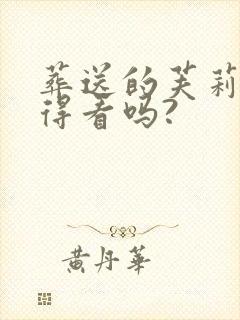 葬送的芙莉
得看吗?
黄丹華